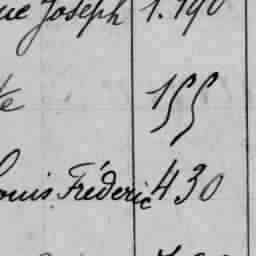 ue Joseph 1.190
te 155
Louis Fréderic 430